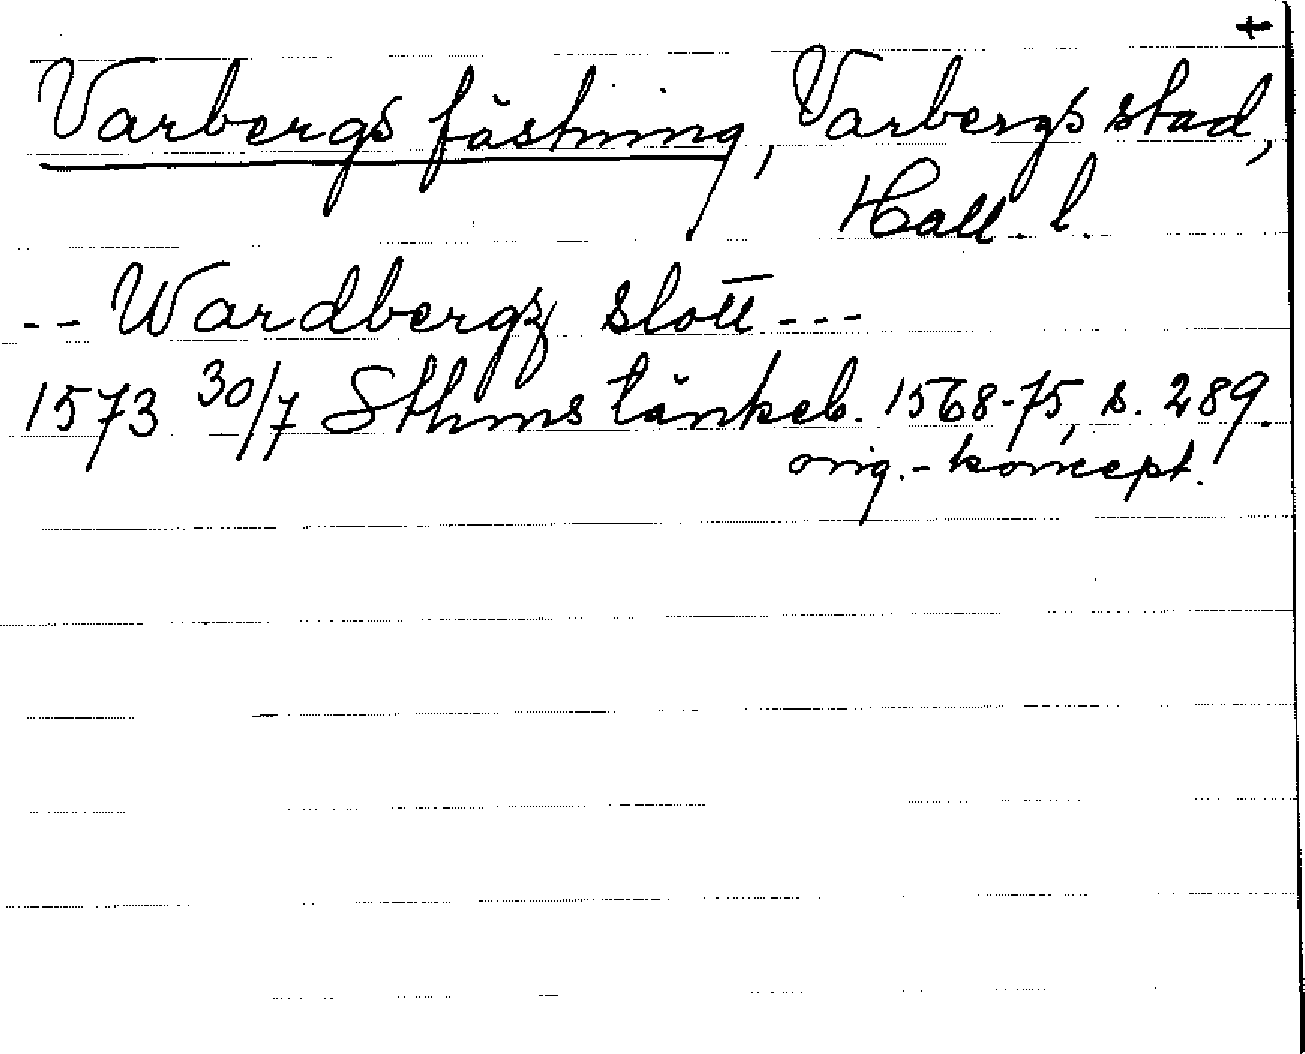 t
Varbergs fästning, Varbergs stad,
Hall. l.
-- Wardbergz slott ---
1573 30/7 Sthms tänkeb. 1568-75, s. 289.
orig.-koncept.